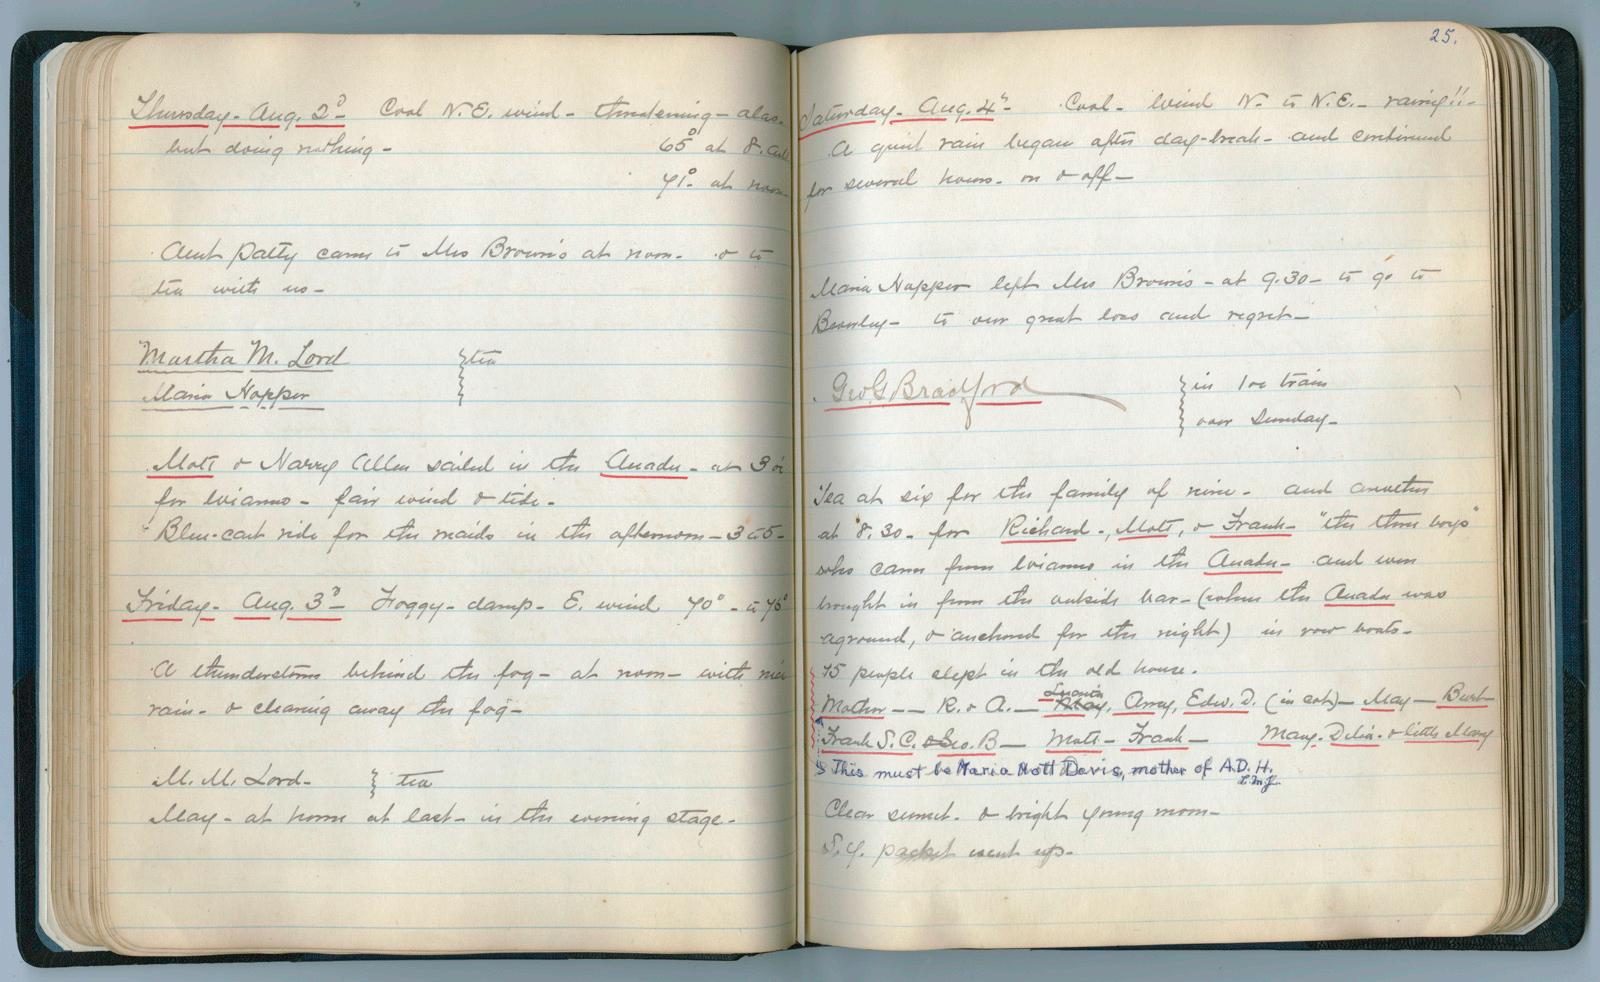 Thursday - Aug. 2d - Cool N.E. wind - threatening - alas.
but doing nothing - 65° at 8. a.m.
71° at noon
Aunt Patty came to Mrs Brown's at noon - & to
tea with us -
Martha M. Lord } tea
Maria Hopper
Mott & Harry Allen sailed in the - at 3 o'c
for Wianno - fair wind & tide -
Blue-cart ride for the maids in the afternoon - 3 to 5 -
Friday - Aug. 3d - Foggy - damp - E. wind 70° - to 76°
A thunderstorm behind the fog - at noon - with nice
rain - & clearing away the fog -
M. M. Lord - } tea
May - at home at last - in the evening stage -
25.
Saturday - Aug. 4th - Cool - Wind N - to N.E. - raing!! -
A quiet rain began after day-break - and continued
for several hours - on & off -
Maria Hopper left Mrs Brown's - at 9.30 - to go to
Beverley - to our great loss and regret -
Geo G Bradford } in 1 o'c train
over Sunday -
Tea at six for the family of nine - and another
at 8.30 - for Richard -, Mott, & Frank - "the three boys"
who came from Wianno in the - and were
brought in from the outside bar - (when the was
aground, & anchored for the night) in row boats -
15 people slept in the old house.
Mother - - R. & A. - May, Amy, Edw. D. (in cot) - May -
Frank S. C. & Geo. B - Mott - Frank - Mary - Delia - & little Mary
This must be Maria Mott Davis, mother of A.D.H.
Clear sunset - & bright young moon -
S.Y. packet went up -